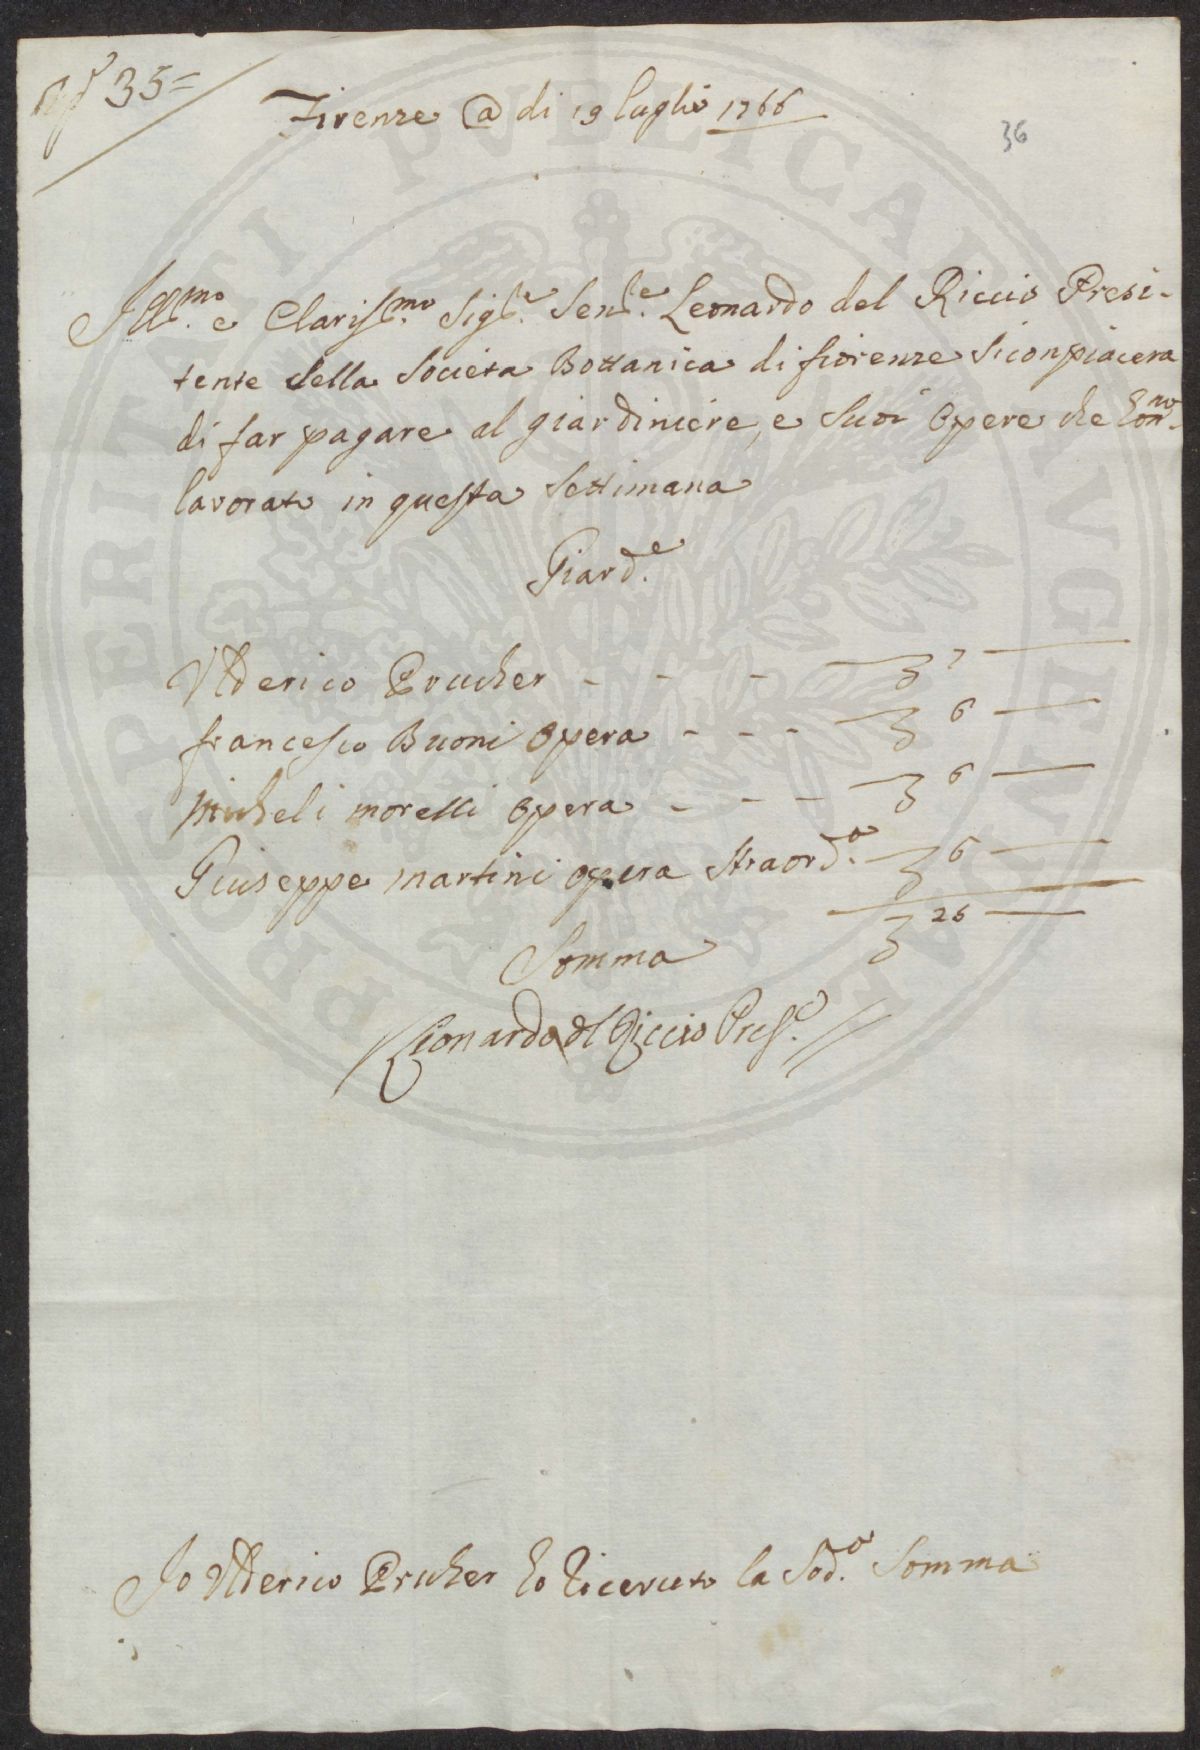 N.º 35=
Firenze @ di 19 luglio 1766
36
Ill.mo e Clariss.mo Sig.re Sen.re Leonardo del Riccio Presi-
tente della Societa Bottanica di fiorenze Siconpiacera
di far pagare al giardiniere, e Suoi Opere che hon.no
lavorato in questa Settimana
Giard.e
Ulderico Prucher - - - 7 —
francesco Buoni Opera - - - 6 —
Micheli morelli Opera - - - 6 —
Giuseppe martini opera Straord.a 6 —
25 —
Somma
Lionardo del Riccio Pres.e
Io Ulderico Prucher ho riceuto la Sod.a Somma
PROSPERITATI PVBLICAE AVGENDAE